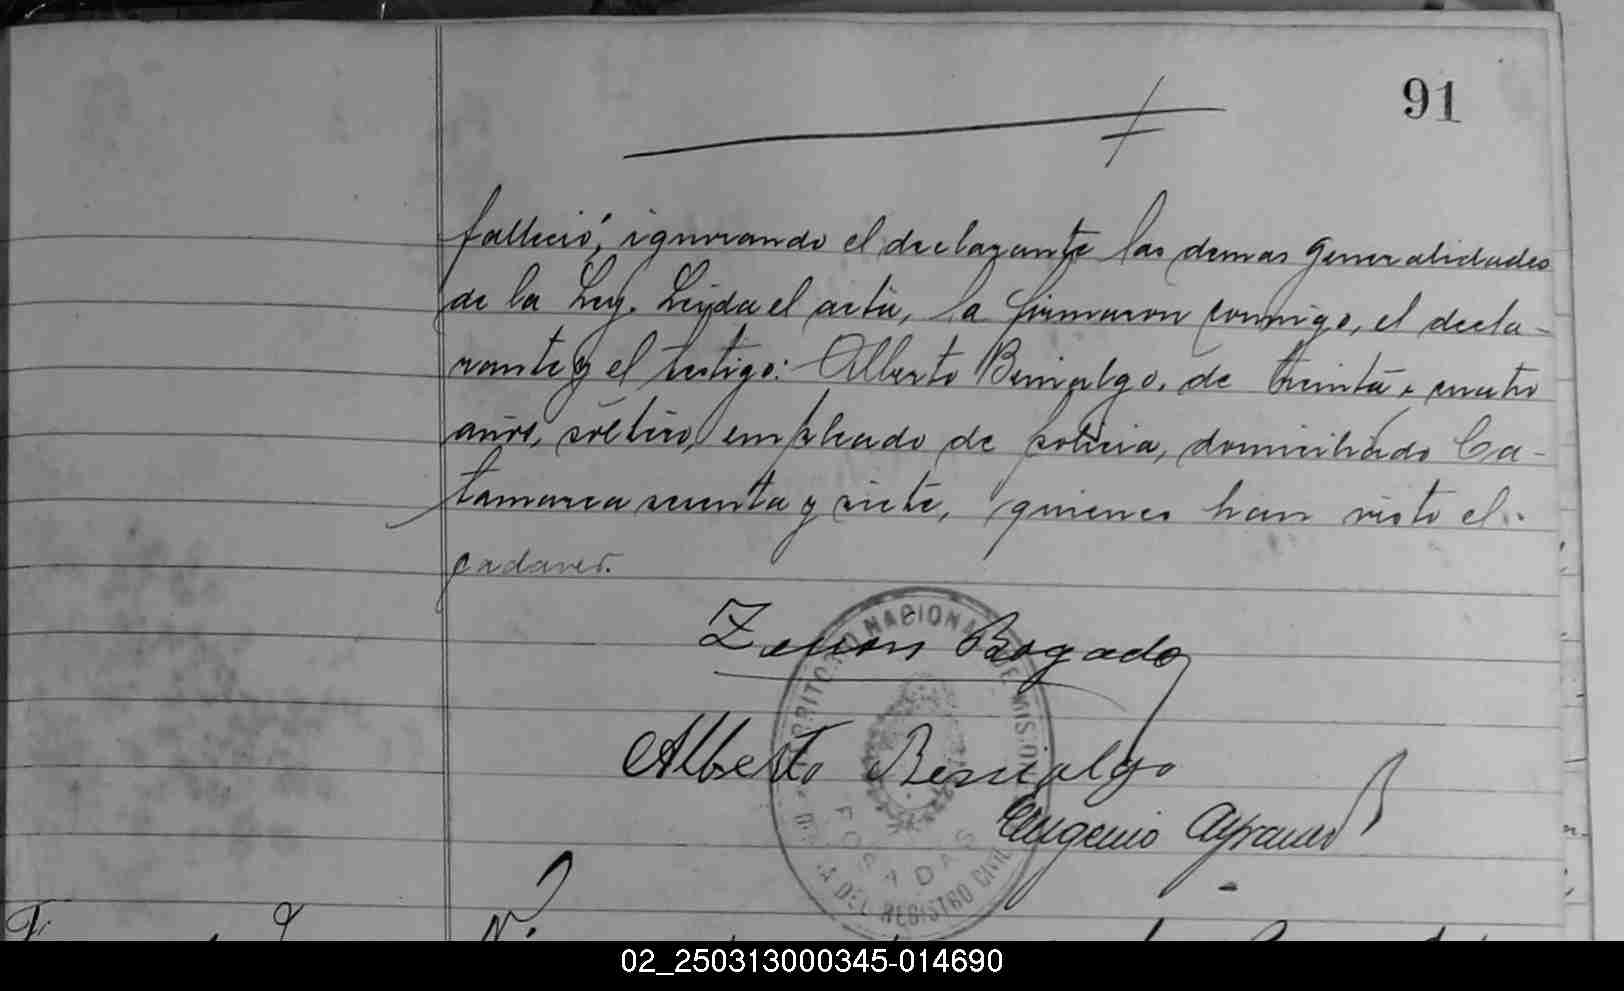 91
falleció, ignorando el declarante las demas generalidades
de la Ley. Leida el acta, la firmaron conmigo, el decla-
rante y el testigo: Alberto Benialgo, de treinta y cuatro
años, soltero, empleado de policia, domiciliado Ca-
tamarca sesenta y siete, quienes han visto el
cadaver.
Zenon Bogado
Alberto Benialgo
Eugenio
TERRITORIO NACIONAL DE MISIONES
POSADAS
DEL REGISTRO CIVIL
N.
02_250313000345-014690